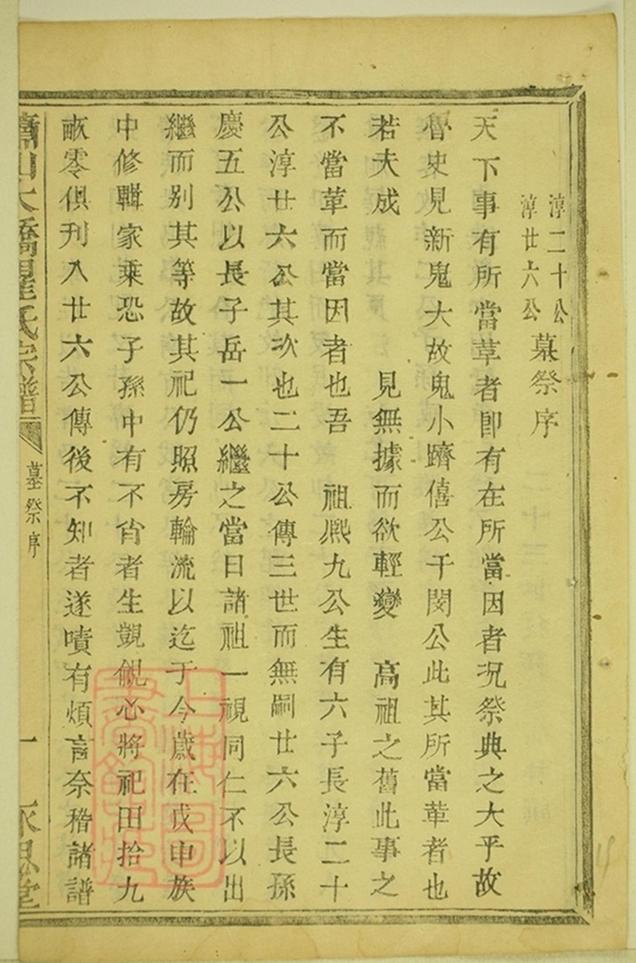 淳二十公
淳廿六公
墓祭序
天下事有所當革者卽有在所當因者況祭典之大乎故
魯史見新鬼大故鬼小躋僖公于閔公此其所當革者也
若夫成 見無據而欲輕變 高祖之舊此事之
不當革而當因者也吾 祖熈九公生有六子長淳二十
公淳廿六公其次也二十公傳三世而無嗣廿六公長孫
慶五公以長子岳一公繼之當日諸祖一視同仁不以出
繼而别其等故其祀仍照房輪流以迄于今歲在戊申族
中修輯家乘恐子孫中有不肖者生覬覦心將祀田拾九
畝零俱刊入廿六公傳後不知者遂嘖有煩言奈稽諸譜
蕭山大橋 氏宗譜
墓祭序
一
永思堂